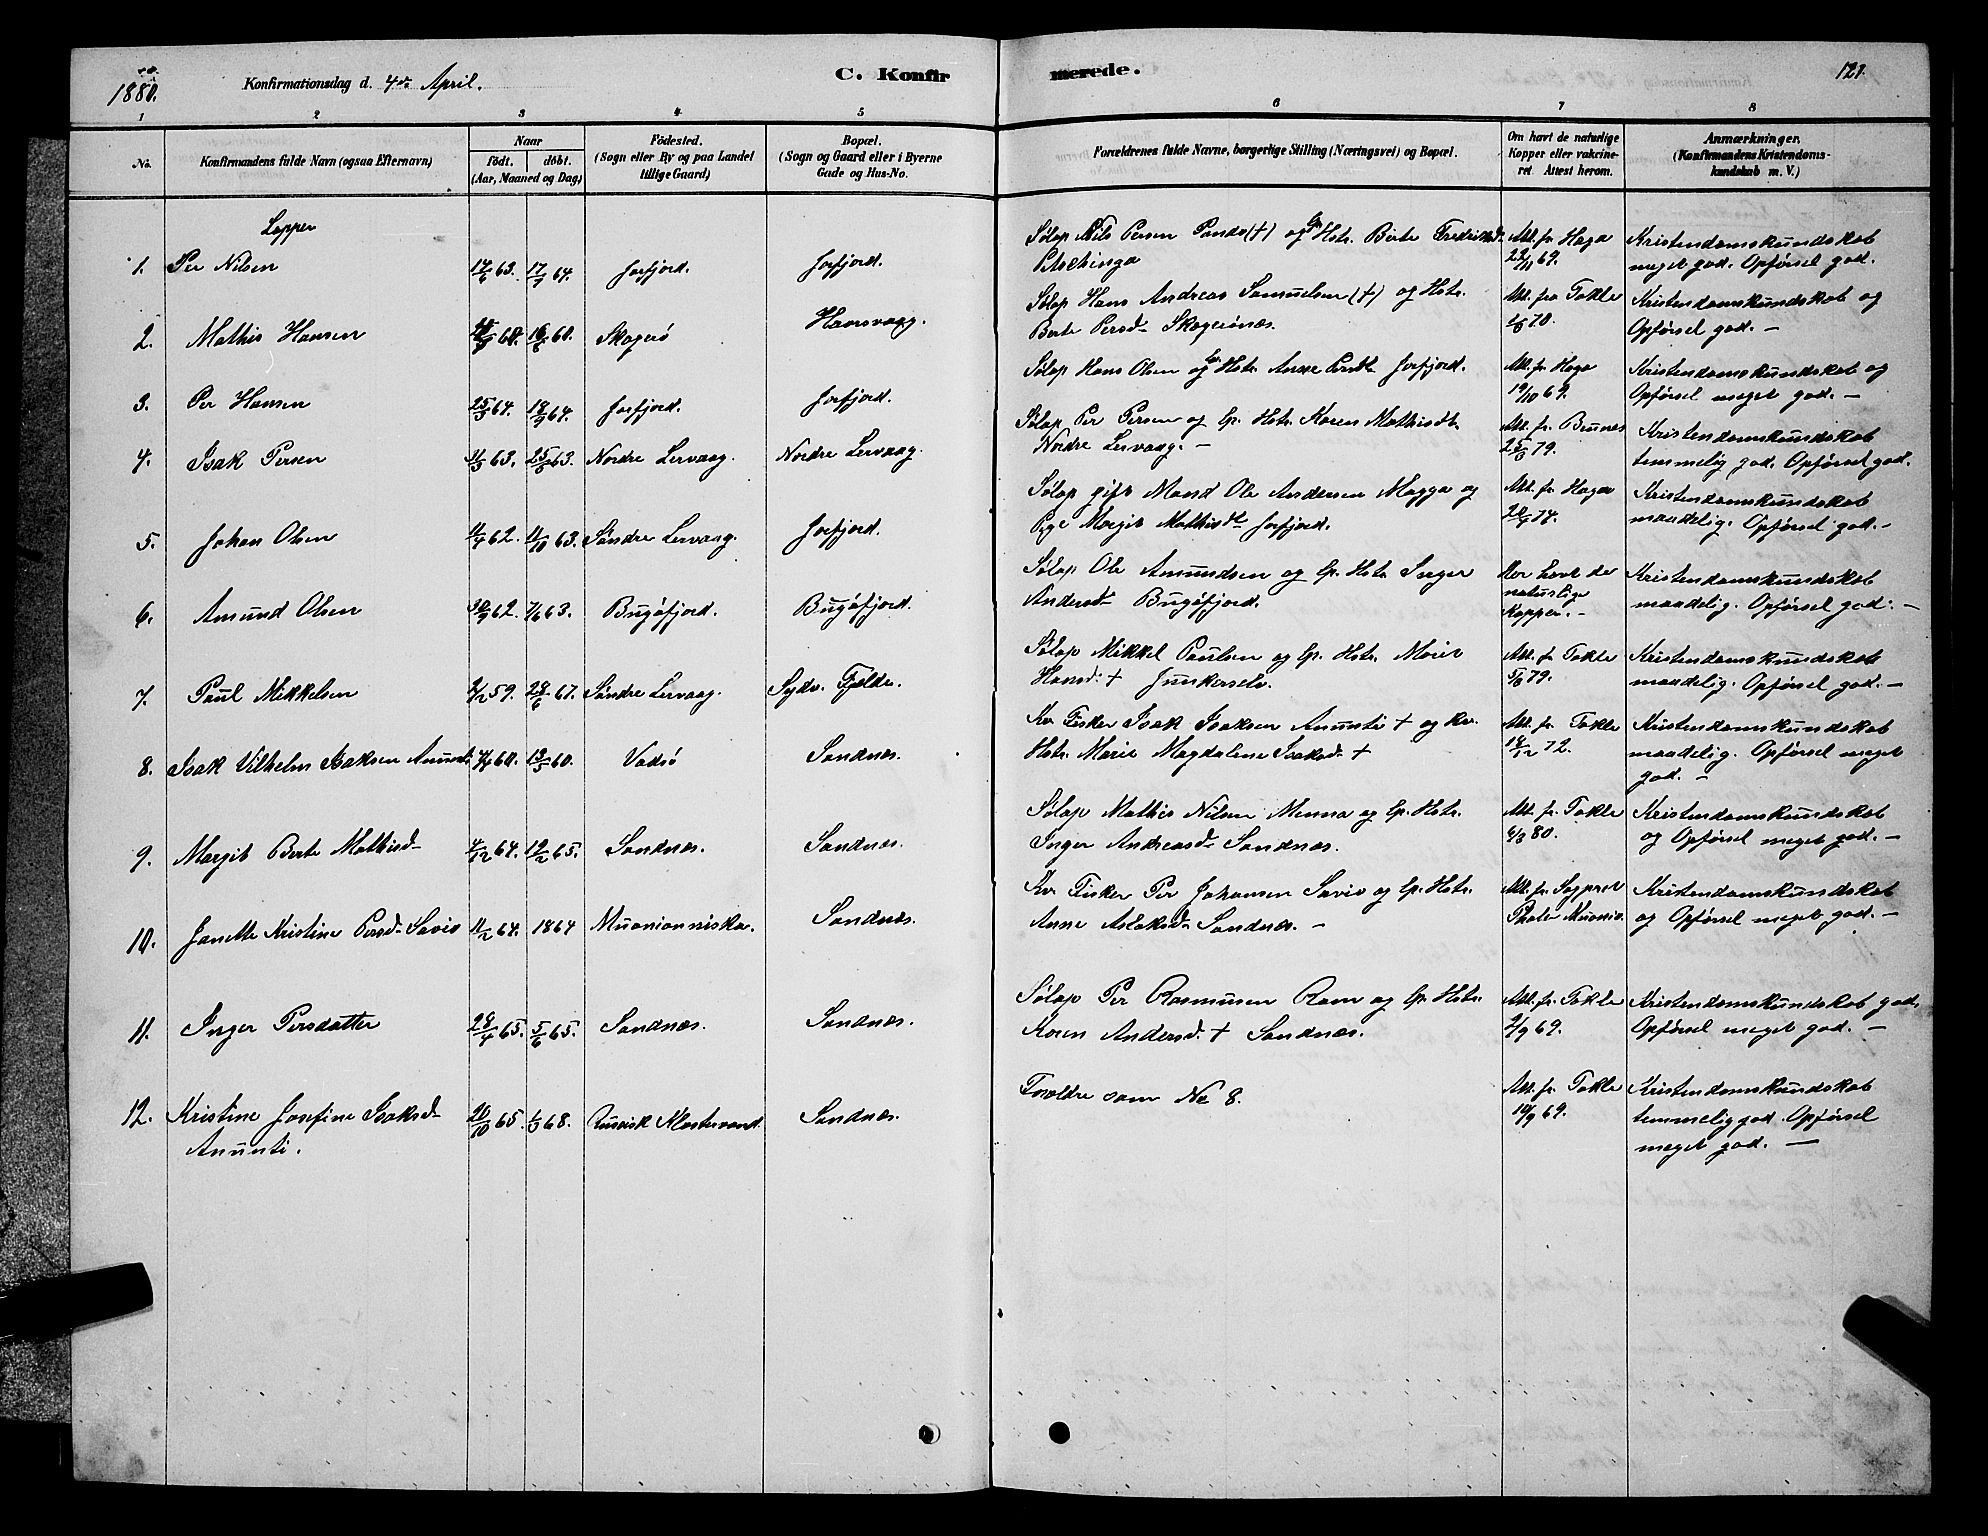 1880.
Konfirmationsdag d. 4de April.
C. Konfirmerede.
121.
1 2 3 4 5 6 7 8
No. Konfirmandens fulde Navn (ogsaa Efternavn)
Naar
født. døbt.
(Aar, Maaned og Dag)
Fødested.
(Sogn eller By og paa Landet
tillige Gaard)
Bopæl.
(Sogn og Gaard eller i Byerne
Gade og Hus-No.
Forældrenes fulde Navne, borgerlige Stilling (Næringsvei) og Bopæl.
Om havt de naturlige
Kopper eller vakcine-
ret. Attest herom.
Anmærkninger.
(Konfirmandens Kristendoms-
kundskab m. V.)
Lapper
1. Per Nilsen 14/6 63. 17/7 64. Jarfjord. Jarfjord.
Sølap Nils Persen Panda (+) og Lp. Hstr. Berte Fredriksd.
Petschinga
Att. fr. Haga
22/11 69.
Kristendomskundskab
meget god. Opførsel god.
2. Mathis Hansen 60. 16/6 60. Skogerø Havsvaag.
Sølap Hans Andreas Samuelsen (+) og Hstr.
Berte Persd. Skogerønæs.
Att. fra Tokle
70.
Kristendomskundskab og
Opførsel god. —
3. Per Hansen 25/3 64. 18/9 64. Jarfjord. Jarfjord.
Sølap Hans Olsen og Lp. Hstr. Anne Persdt. Jarfjord.
Att. fr. Haga
19/10 69.
Kristendomskundskab og
Opførsel meget god. —
4. Isak Persen 11/3 63. 25/5 63. Nordre Lervaag. Nordre Lervaag.
Sølap Per Persen og Lp. Hstr. Karen Mathisdt.
Nordre Lervaag. —
Att. fr. Brunæs
79.
Kristendomskundskab
temmelig god. Opførsel god.
5. Johan Olsen 62. 11/10 63. Søndre Lervaag. Jarfjord.
Sølap gift Mand Ole Andersen Magga og
Pige Margit Mathisdt. Jarfjord.
Att. fr. Haga
74.
Kristendomskundskab
maadelig. Opførsel god. —
6. Amund Olsen 30/9 62. 7/6 63. Bugøfjord. Bugøfjord.
Sølap Ole Amundsen og Lp. Hstr. Inger
Andersdt. Bugøfjord.
Har havt de
naturlige
Kopper. —
Kristendomskundskab
maadelig. Opførsel god. —
7. Paul Mikkelsen 2/12 59. 28/6 67. Søndre Lervaag. Sydv. Fjelde.
Sølap Mikkel Paulsen og Lp. Hstr. Marit
Hansd. + Junkerselv.
Att. fr. Tokle
5/8 79.
Kristendomskundskab
maadelig. Opførsel god. —
8. Isak Vilhelm Isaksen Anunti 60. 13/5 60. Vadsø Sandnæs.
Kv. Fisker Isak Isaksen Anunti + og Kv.
Hstr. Marie Magdalene Isaksd. +
Att. fr. Tokle
18/12 72.
Kristendomskundskab
maadelig. Opførsel meget
god. —
9. Margit Berte Mathisd. 4/12 64. 19/2 65. Sandnæs. Sandnæs.
Sølap Mathis Nilsen Menna og Lp. Hstr.
Inger Andreasd. Sandnæs.
Att. fr. Tokle
6/3 80.
Kristendomskundskab
og Opførsel meget god. —
10. Janette Kristine Persd. Savio 11/2 64. 1864 Muonionniska. Sandnæs.
Kv. Fisker Per Johansen Savio og Lp. Hstr.
Anne Aslaksd. Sandnæs. —
Att. fr. Sogprst
Muonio.
Kristendomskundskab
og Opførsel meget god. —
11. Inger Persdatter 28/4 65. 5/6 65. Sandnæs. Sandnæs.
Sølap Per Rasmusen Ram og Lp. Hstr.
Karen Andersd. + Sandnæs.
Att. fr. Tokle
2/9 69.
Kristendomskundskab god.
Opførsel meget god. —
12. Kristine Josefine Isaksd. 20/10 65. 1/3 68. Russisk Klostervand. Sandnæs.
Anunti.
Forældre som No 8.
Att. fr. Tokle
10/9 69.
Kristendomskundskab
temmelig god. Opførsel
meget god. —